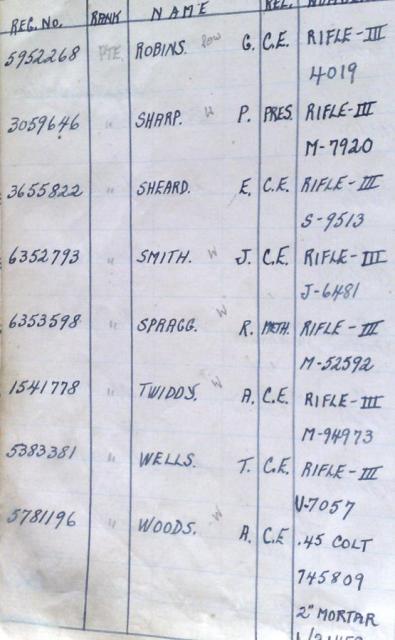 REG. No. RANK NAME REL.
5952268 PTE. ROBINS. G. C.E. RIFLE-III
4019
3059646 " SHARP. W P. PRES. RIFLE-III
M-7920
3655822 " SHEARD. E. C.E. RIFLE-III
S-9513
6352793 " SMITH. W J. C.E. RIFLE-III
J-6481
6353598 " SPRAGG. W R. METH. RIFLE-III
M-52592
1541778 " TWIDDY. W A. C.E. RIFLE-III
M-94973
5383381 " WELLS. T. C.E. RIFLE-III
U-7057
5781196 " WOODS. W A. C.E .45 COLT
745809
2" MORTAR